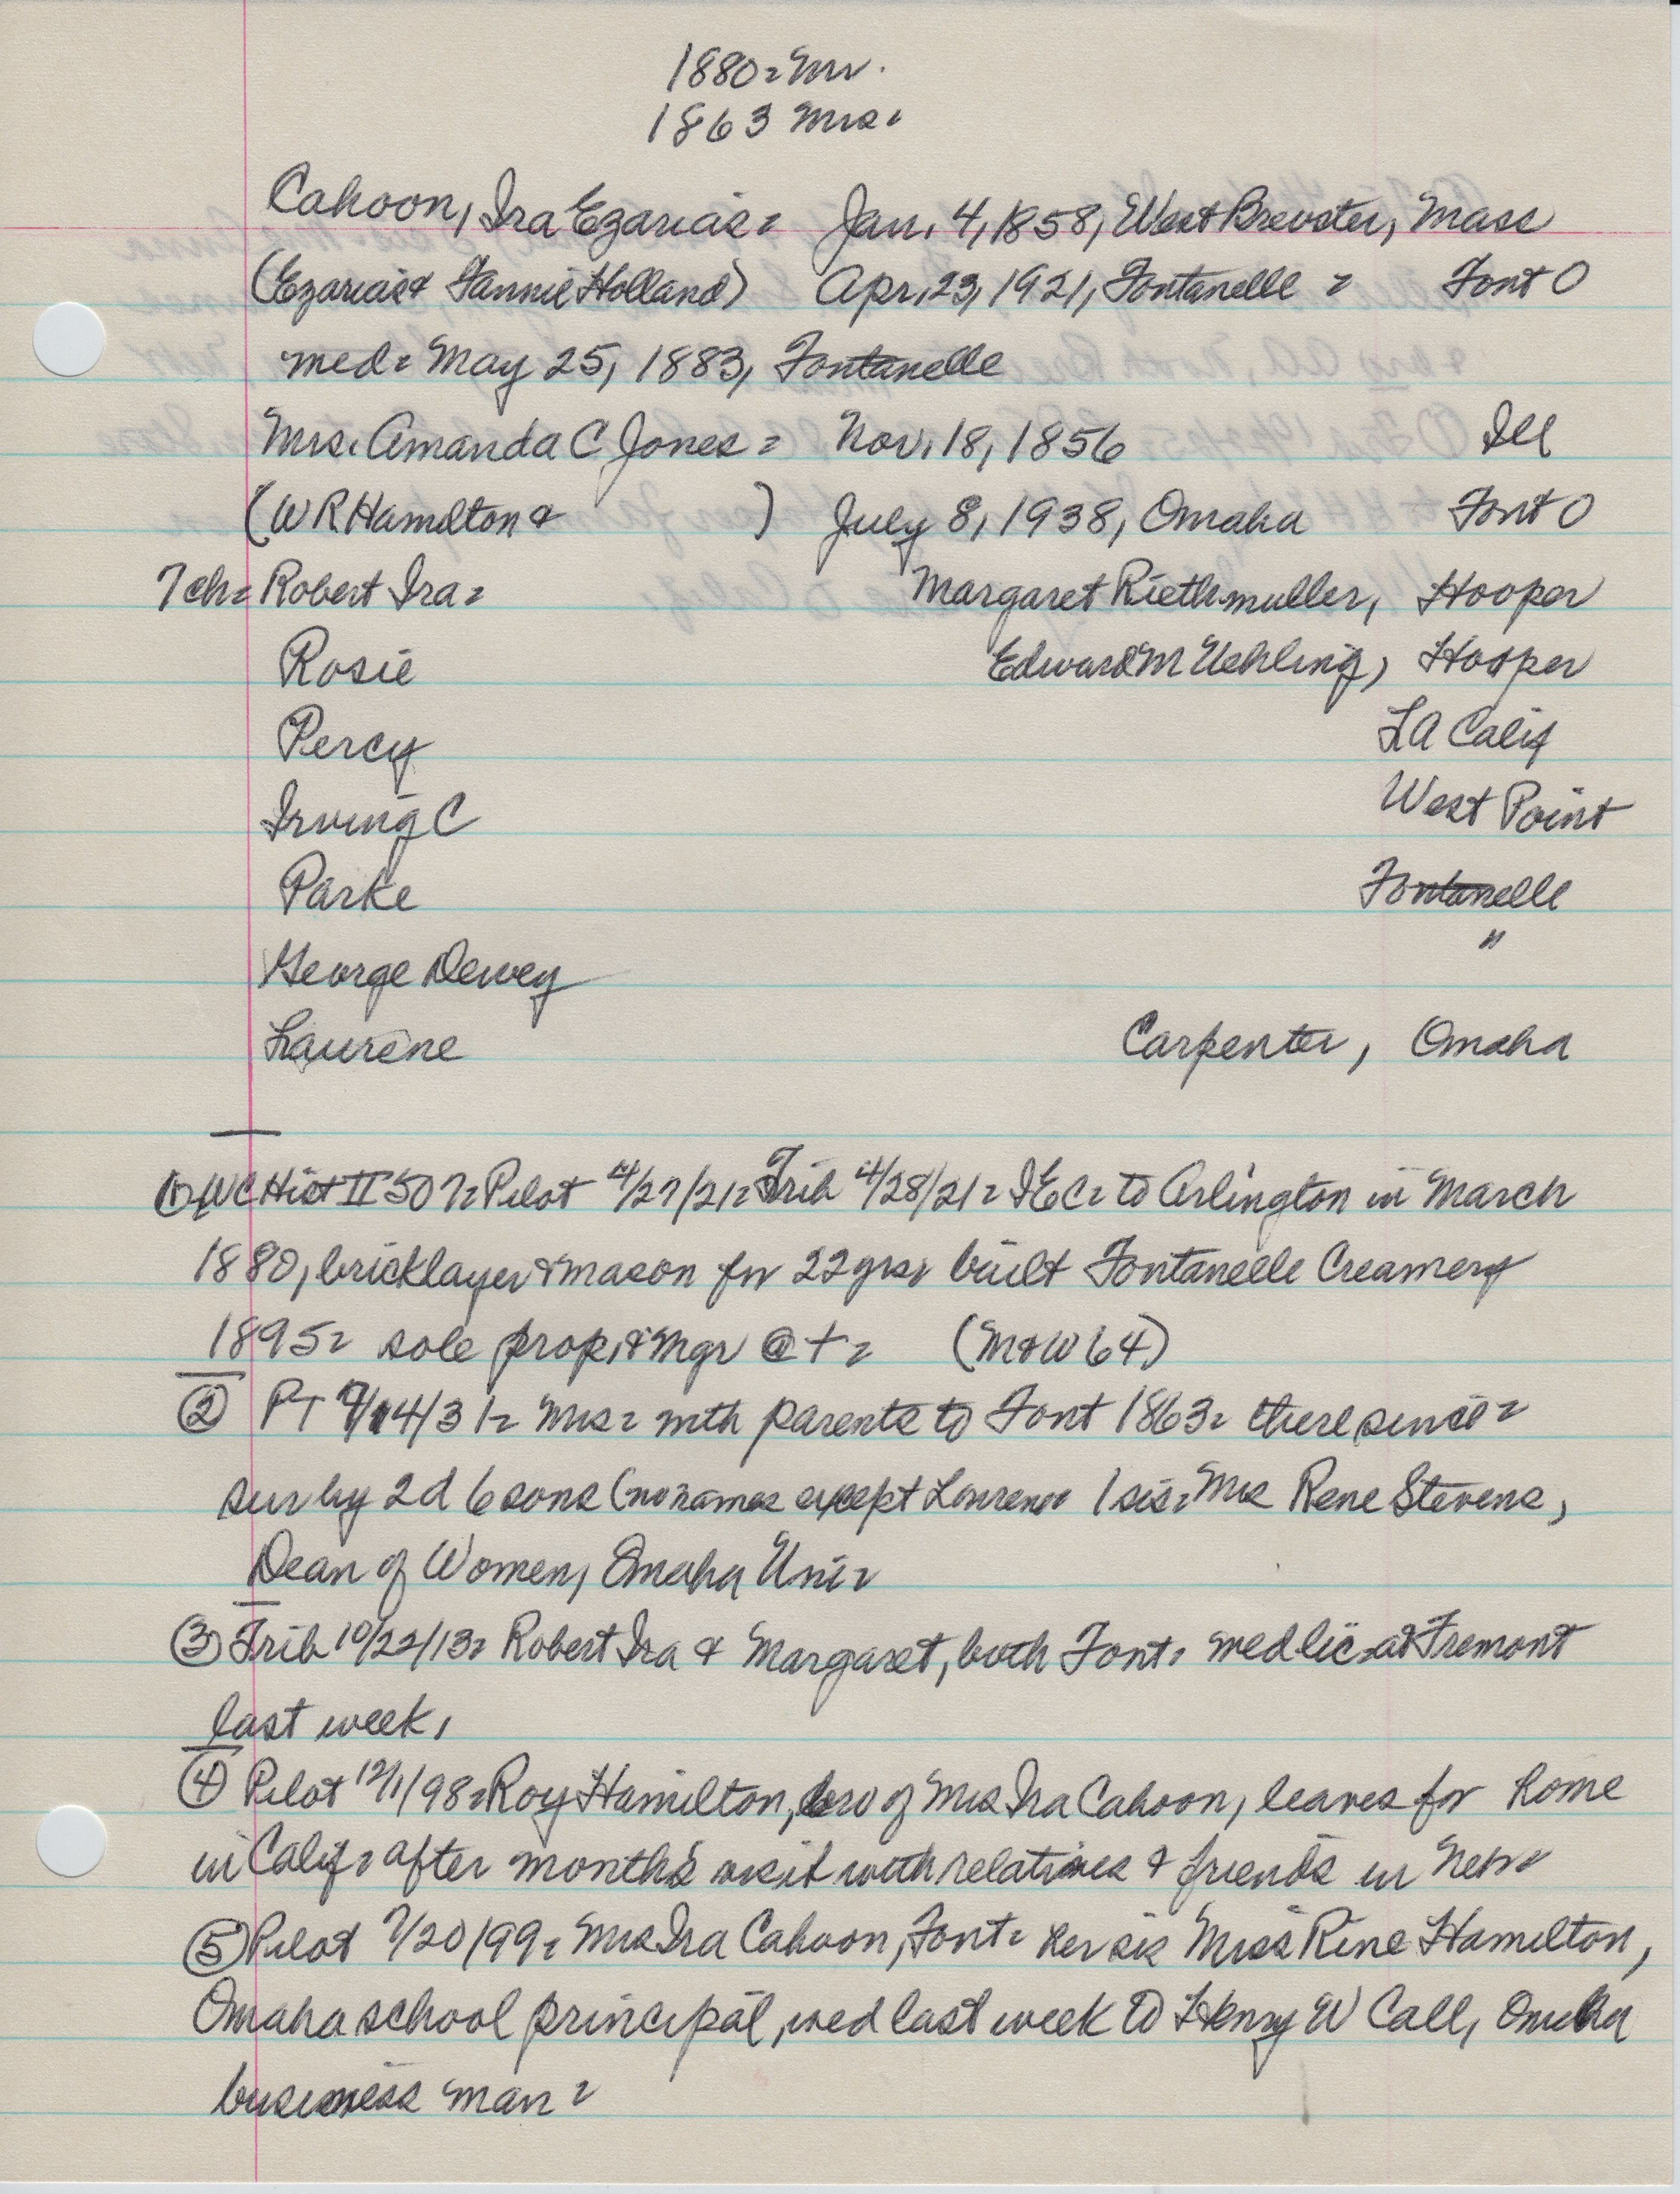 1880 = Mr.
1863 Mrs.
Cahoon, Ira Ezarias = Jan. 4, 1858, West Brewster, Mass
(Ezarias & Fannie Holland) Apr. 23, 1921, Fontanelle = Font O
med = May 25, 1883, Fontanelle
Mrs. Amanda C Jones = Nov. 18, 1856 Ill
(W R Hamilton & ) July 8, 1938, Omaha Font O
7 ch = Robert Ira = Margaret Riethmuller, Hooper
Rosie Edward M Uehling, Hooper
Percy LA Calif
Irving C West Point
Parke Fontanelle
George Dewey "
Laurene Carpenter, Omaha
① WC Hist II 507 = Pilot 4/27/21 = Trib 4/28/21 = IEC = to Arlington in March
1880, bricklayer & mason for 22 yrs, built Fontanelle Creamery
1895 = sole prop. & Mgr @ + = (M & W 64)
② PT = Mrs = with parents to Font 1863 = there since =
sur by 2 d 6 sons (no names except 1 sis, Mrs Rene Stevens,
Dean of Women, Omaha Uni =
③ Trib 10/22/13 = Robert Ira & Margaret, both Font, wed lic at Fremont
last week,
④ Pilot 12/1/98 = Roy Hamilton, bro of Mrs Ira Cahoon, leaves for home
in Calif, after months visit with relatives & friends in Neb =
⑤ Pilot 7/20/99 = Mrs Ira Cahoon, Font = her sis Miss Rine Hamilton,
Omaha school principal, wed last week to Henry W Call, Omaha
business man =